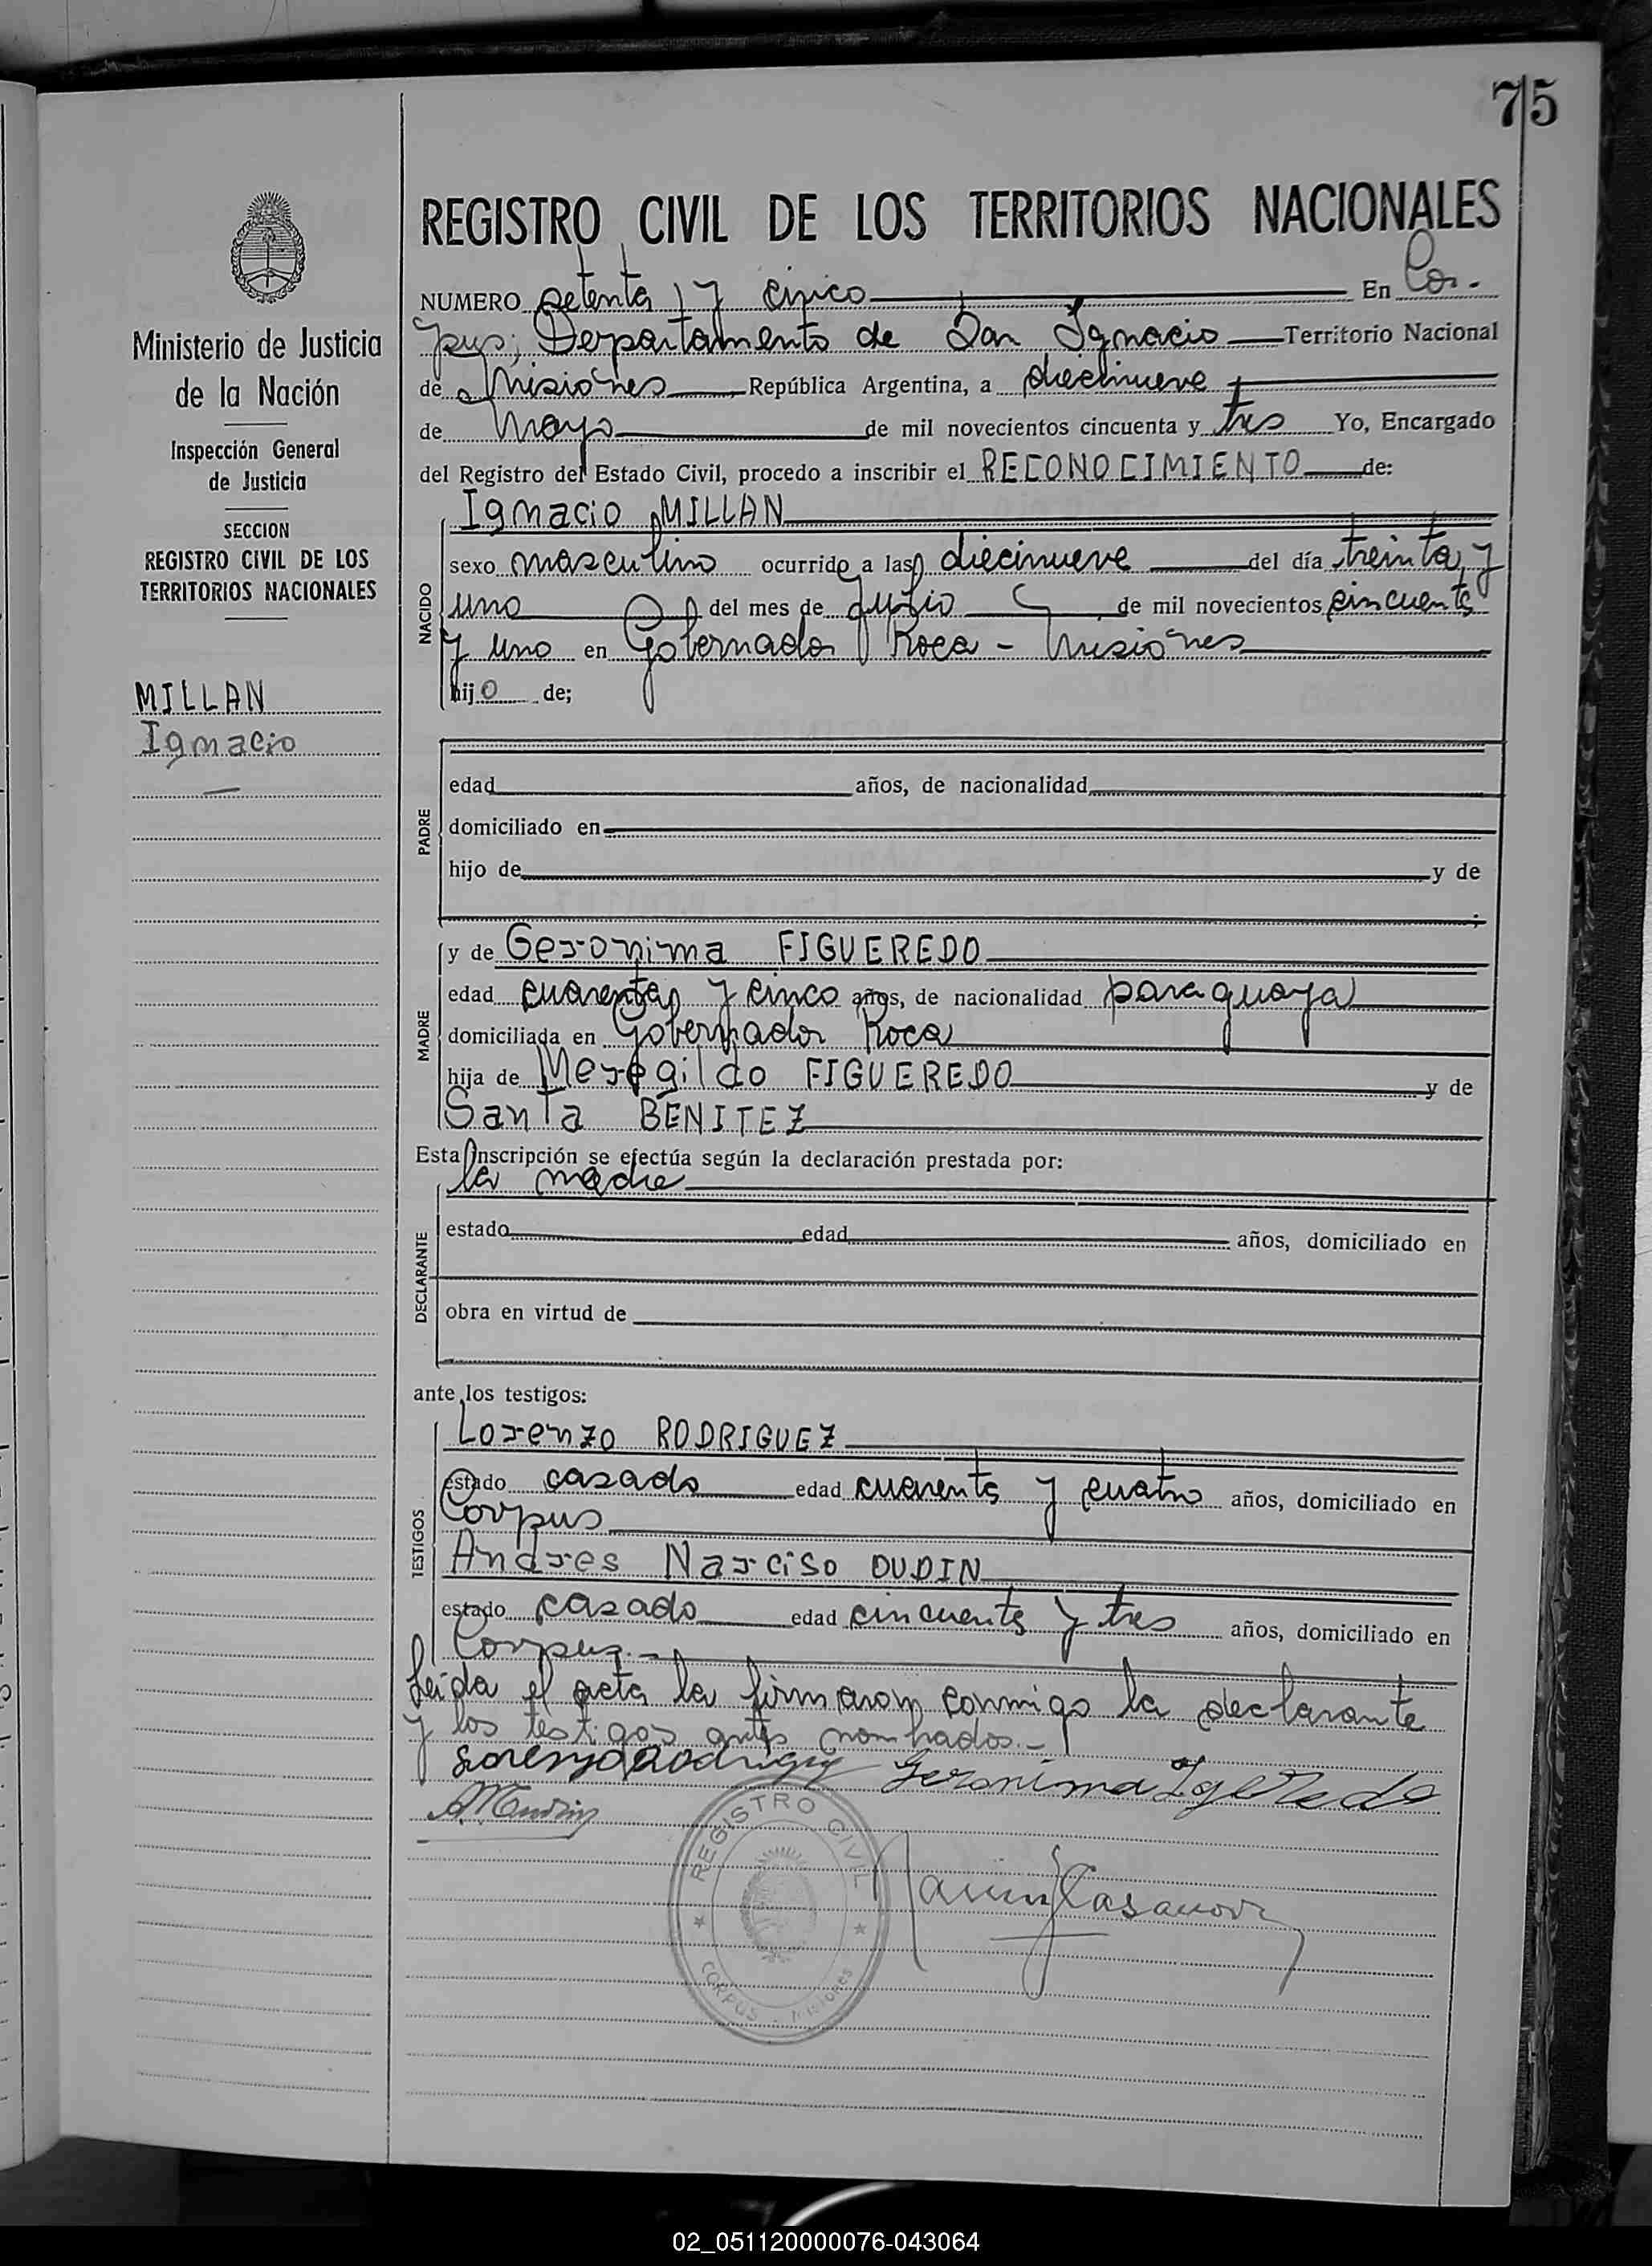 75
REGISTRO CIVIL DE LOS TERRITORIOS NACIONALES
NUMERO setenta y cinco En Cor-
pus, Departamento de San Ignacio Territorio Nacional
de Misiones República Argentina, a diecinueve
de Mayo de mil novecientos cincuenta y tres Yo, Encargado
del Registro del Estado Civil, procedo a inscribir el RECONOCIMIENTO de:
NACIDO
Ignacio MILLAN
sexo masculino ocurrido a las diecinueve del día treinta y
uno del mes de de mil novecientos cincuenta
y uno en Gobernador Roca - Misiones
hijo de;
PADRE
edad años, de nacionalidad
domiciliado en
hijo de y de
;
MADRE
y de Geronima FIGUEREDO
edad cuarenta y cinco años, de nacionalidad paraguaya
domiciliada en Gobernador Roca
hija de Meregildo FIGUEREDO y de
Santa BENITEZ
Esta Inscripción se efectúa según la declaración prestada por:
la madre
DECLARANTE
estado edad años, domiciliado en
obra en virtud de
ante los testigos:
TESTIGOS
Lorenzo RODRIGUEZ
estado casado edad cuarenta y cuatro años, domiciliado en
Corpus
Andres Narciso OUDIN
estado casado edad cincuenta y tres años, domiciliado en
Corpus.-
Leida el acta la firmaron conmigo la declarante
y los testigos antes nombrados.-
Lorenzo Rodriguez Geronima Igeredo
REGISTRO CIVIL
CORPUS - Misiones
Casanova
Ministerio de Justicia
de la Nación
Inspección General
de Justicia
SECCION
REGISTRO CIVIL DE LOS
TERRITORIOS NACIONALES
MILLAN
Ignacio
02_051120000076-043064